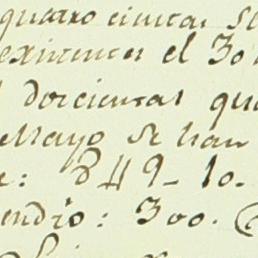 quatro cientas
existentes el 30
doscientas qua
Mayo se han
849_ 10.
endio: 300.